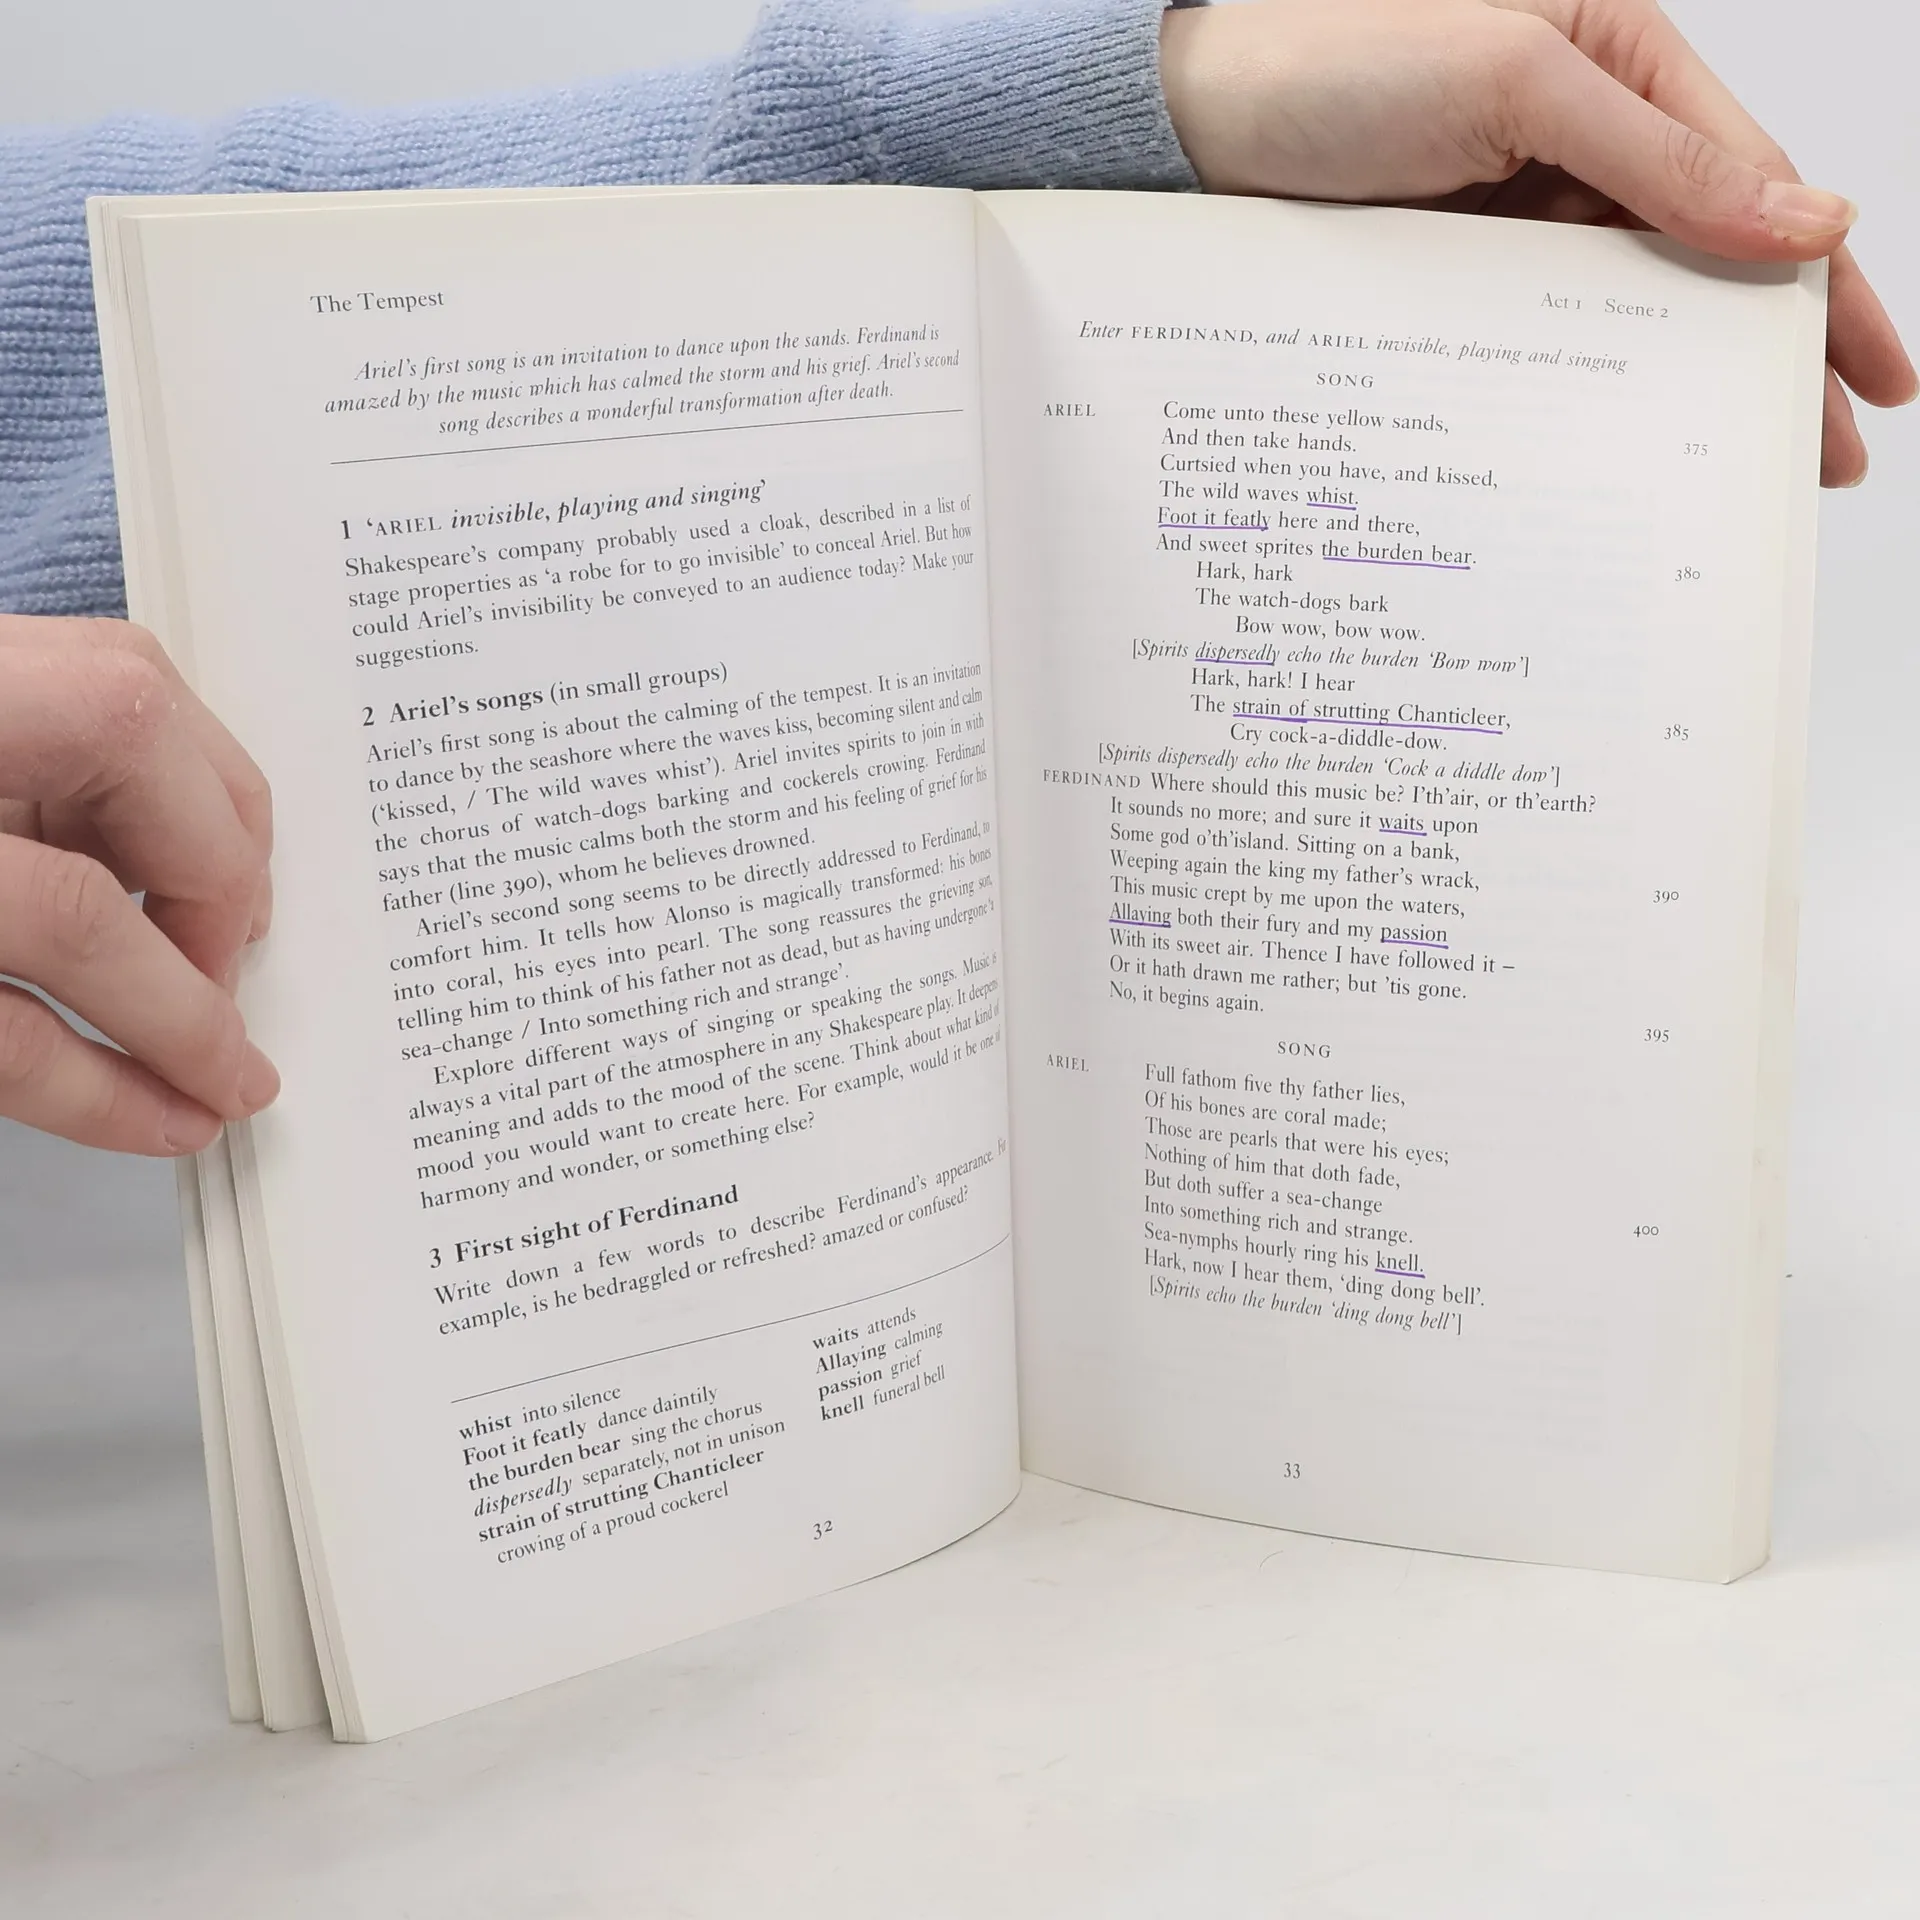 The Tempest
Ariel's first song is an invitation to dance upon the sands. Ferdinand is
amazed by the music which has calmed the storm and his grief. Ariel's second
song describes a wonderful transformation after death.
1 'ARIEL invisible, playing and singing'
Shakespeare's company probably used a cloak, described in a list of
stage properties as 'a robe for to go invisible' to conceal Ariel. But how
could Ariel's invisibility be conveyed to an audience today? Make your
suggestions.
2 Ariel's songs (in small groups)
Ariel's first song is about the calming of the tempest. It is an invitation
to dance by the seashore where the waves kiss, becoming silent and calm
('kissed, / The wild waves whist'). Ariel invites spirits to join in with
the chorus of watch-dogs barking and cockerels crowing. Ferdinand
says that the music calms both the storm and his feeling of grief for his
father (line 390), whom he believes drowned.
Ariel's second song seems to be directly addressed to Ferdinand, to
comfort him. It tells how Alonso is magically transformed: his bones
into coral, his eyes into pearl. The song reassures the grieving son,
telling him to think of his father not as dead, but as having undergone 'a
sea-change / Into something rich and strange'.
Explore different ways of singing or speaking the songs. Music is
always a vital part of the atmosphere in any Shakespeare play. It deepens
meaning and adds to the mood of the scene. Think about what kind of
mood you would want to create here. For example, would it be one of
harmony and wonder, or something else?
3 First sight of Ferdinand
Write down a few words to describe Ferdinand's appearance. For
example, is he bedraggled or refreshed? amazed or confused?
whist into silence
Foot it featly dance daintily
the burden bear sing the chorus
dispersedly separately, not in unison
strain of strutting Chanticleer
crowing of a proud cockerel
waits attends
Allaying calming
passion grief
knell funeral bell
32
Act 1 Scene 2
Enter FERDINAND, and ARIEL invisible, playing and singing
SONG
ARIEL Come unto these yellow sands,
And then take hands. 375
Curtsied when you have, and kissed,
The wild waves whist.
Foot it featly here and there,
And sweet sprites the burden bear.
Hark, hark 380
The watch-dogs bark
Bow wow, bow wow.
[Spirits dispersedly echo the burden 'Bow wow']
Hark, hark! I hear
The strain of strutting Chanticleer,
Cry cock-a-diddle-dow. 385
[Spirits dispersedly echo the burden 'Cock a diddle dow']
FERDINAND Where should this music be? I'th'air, or th'earth?
It sounds no more; and sure it waits upon
Some god o'th'island. Sitting on a bank,
Weeping again the king my father's wrack,
This music crept by me upon the waters, 390
Allaying both their fury and my passion
With its sweet air. Thence I have followed it –
Or it hath drawn me rather; but 'tis gone.
No, it begins again.
SONG 395
ARIEL Full fathom five thy father lies,
Of his bones are coral made;
Those are pearls that were his eyes;
Nothing of him that doth fade,
But doth suffer a sea-change
Into something rich and strange. 400
Sea-nymphs hourly ring his knell.
Hark, now I hear them, 'ding dong bell'.
[Spirits echo the burden 'ding dong bell']
33